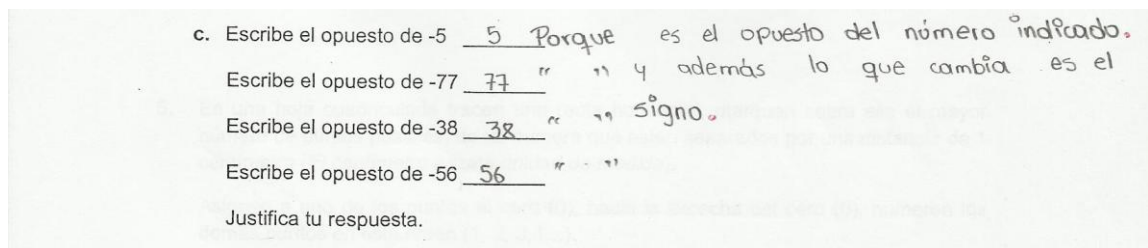 c. Escribe el opuesto de -5 5 Porque es el opuesto del número indicado.
Escribe el opuesto de -77 77 " " y además lo que cambia es el
Escribe el opuesto de -38 38 " " signo.
Escribe el opuesto de -56 56 " "
Justifica tu respuesta.